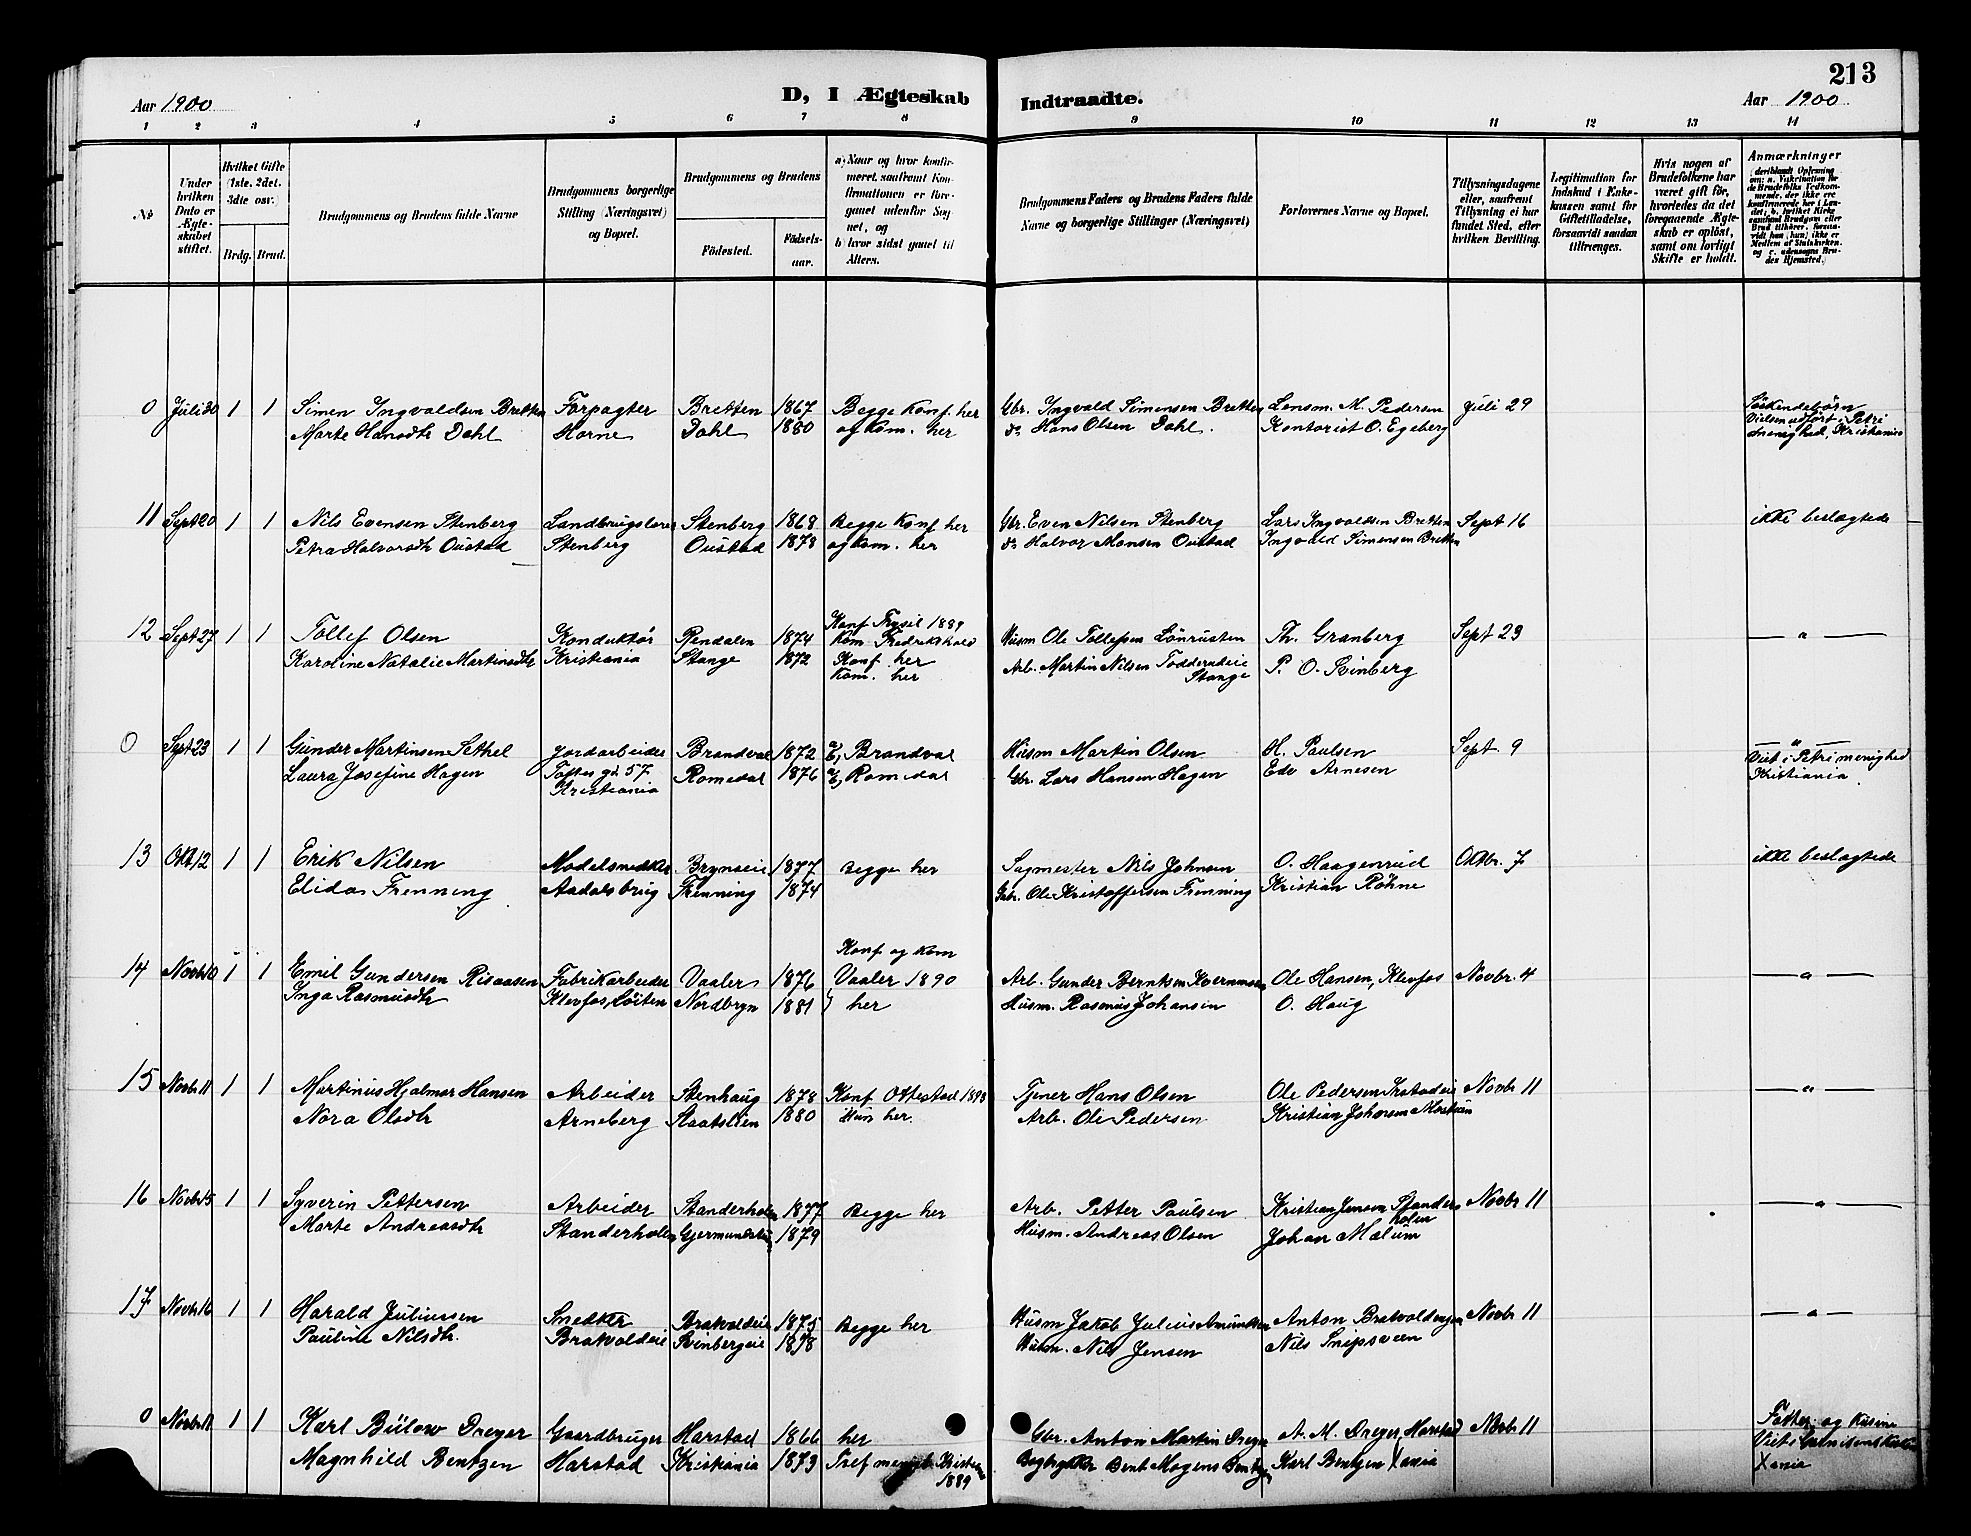 213
Aar 1900
D, I Ægteskab Indtraadte.
Aar 1900
1 2 3 4 5 6 7 8 9 10 11 12 13 14
No
Under hvilken Dato er Ægteskabet stiftet.
Hvilket Gifte (1ste, 2det, 3die osv.)
Brdg. Brud.
Brudgommens og Brudens fulde Navne
Brudgommens borgerlige Stilling (Næringsvei) og Bopæl.
Brudgommens og Brudens
Födested.
Födselsaar.
a) Naar og hvor konfirmeret, saafremt Konfirmationen er foregaaet udenfor Sognet, og
b) hvor sidst gaaet til Alters.
Brudgommens Faders og Brudens Faders fulde Navne og borgerlige Stillinger (Næringsvei)
Forlovernes Navne og Bopæl.
Tillysningsdagene eller, saafremt Tillysning ei har fundet Sted, efter hvilken Bevilling.
Legitimation for Indskud i Enkekassen samt for Giftetilladelse, forsaavidt saadan tiltrænges.
Hvis nogen af Brudefolkene har været gift för, hvorledes da det foregaaende Ægteskab er oplöst, samt om lovligt Skifte er holdt.
Anmærkninger
0 Juli 30 1 1 Simen Ingvaldsen Bretten Forpagter Bretten 1867 Begge Konf. her Gbr. Ingvald Simensen Bretten Lensm. M. Pedersen Juli 29 Söskendebörn
Marte Hansdtr Dahl Horne Dahl 1880 og Kom. her do Hans Olsen Dahl. Kontorist O. Egeberg Vielsen udfört i Petri
menighed, Kristiania
11 Sept 20 1 1 Nils Evensen Stenberg Landbrugslærer Stenberg 1868 Begge Konf her Gbr. Even Nilsen Stenberg Lars Ingvaldsen Bretten Sept 16 ikke beslægtede
Petra Halvorsdtr Oustad Stenberg Oustad 1878 og Kom. her do Halvor Monsen Oustad Ingvald Simensen Bretten
12 Sept 27 1 1 Tollef Olsen Konduktör Rendalen 1874 Konf Trysil 1889 Husm Ole Tollefsen Lönrusten Th. Granberg Sept 23 — " —
Kom. Fredrikshald
Karoline Natalie Martinsdtr Kristiania Stange 1872 Konf. her Arb. Martin Nilsen P. O. Svinberg
Kom. her Stange
0 Sept 23 1 1 Gunder Martinsen Sethel Jordarbeider Brandval 1872 Brandval Husm Martin Olsen H. Paulsen Sept. 9 — " —
Laura Josefine Hagen Toftes gd 57 Romedal 1876 Romedal Gbr. Lars Hansen Hagen Edv Arnesen Viet i Petri menighed
Kristiania Kristiania
13 Okt 12 1 1 Erik Nilsen Modelsnedker Brynseie 1877 Begge her Sagmester Nils Johnsen O. Haagenrud Oktbr. 7 ikke beslægtede
Elida Frenning Aadalsbrug Frenning 1874 Gbr. Ole Kristoffersen Frenning Kristian Röhne
14 Novbr 10 1 1 Emil Gundersen Risaasen Fabrikarbeider Vaaler 1876 Konf og Kom Vaaler 1890 Arb. Gunder Berntsen Ole Hansen, Klevfos Novbr. 4 — " —
Inga Rasmusdtr Klevfos, Löiten Nordbryn 1881 her Husm. Rasmus Johansen O. Haug
15 Novbr 11 1 1 Martinius Hjalmar Hansen Arbeider Stenhaug 1878 Konf Ottestad 1893 Tjener Hans Olsen Ole Pedersen Novbr 11 — " —
Nora Olsdtr Arneberg Staatslien 1880 Hun her. Arb. Ole Pedersen Kristian Johansen
16 Novbr 15 1 1 Syverin Pettersen Arbeider Standerholen 1877 Begge her Arb. Petter Paulsen Kristian Jenson Standerholen Novbr 11 — " —
Marte Andreasdtr Standerholen 1879 Husm. Andreas Olsen Johan Mælum
17 Novbr 16 1 1 Harald Juliussen Snedker Bratvoldeie 1875 Begge her Husm Jakob Julius Amundsen Anton Bratvoldengen Novbr 11 — " —
Pauline Nilsdtr. Bratvoldeie Svinbergeie 1878 Husm. Nils Jensen Nils Snipsveen
0 Novbr 1 1 Karl Bülow Dreyer Gaardbruger Harstad 1866 her Gbr. Anton Martin Dreyer A. M. Dreyer, Harstad Novbr 11 Fætter og Kusine
Magnhild Bentzen Harstad Kristiania 1873 menigh. Kristiania Bent Mogens Bentzen Karl Bentzen Xania Viet i Garnisonskirken
1889 Xania